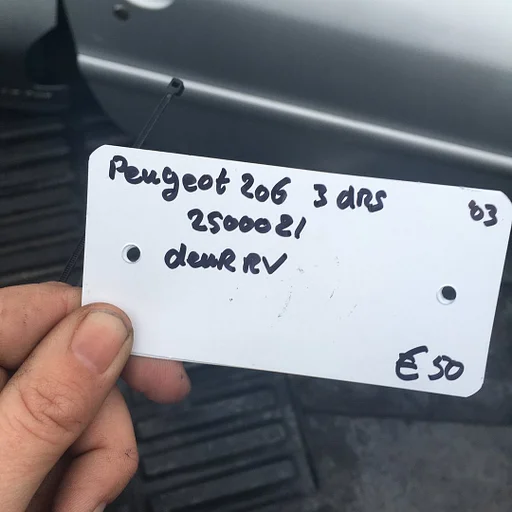 Peugeot 206 3 dRS '03
2500021
deuR RV
€ 50